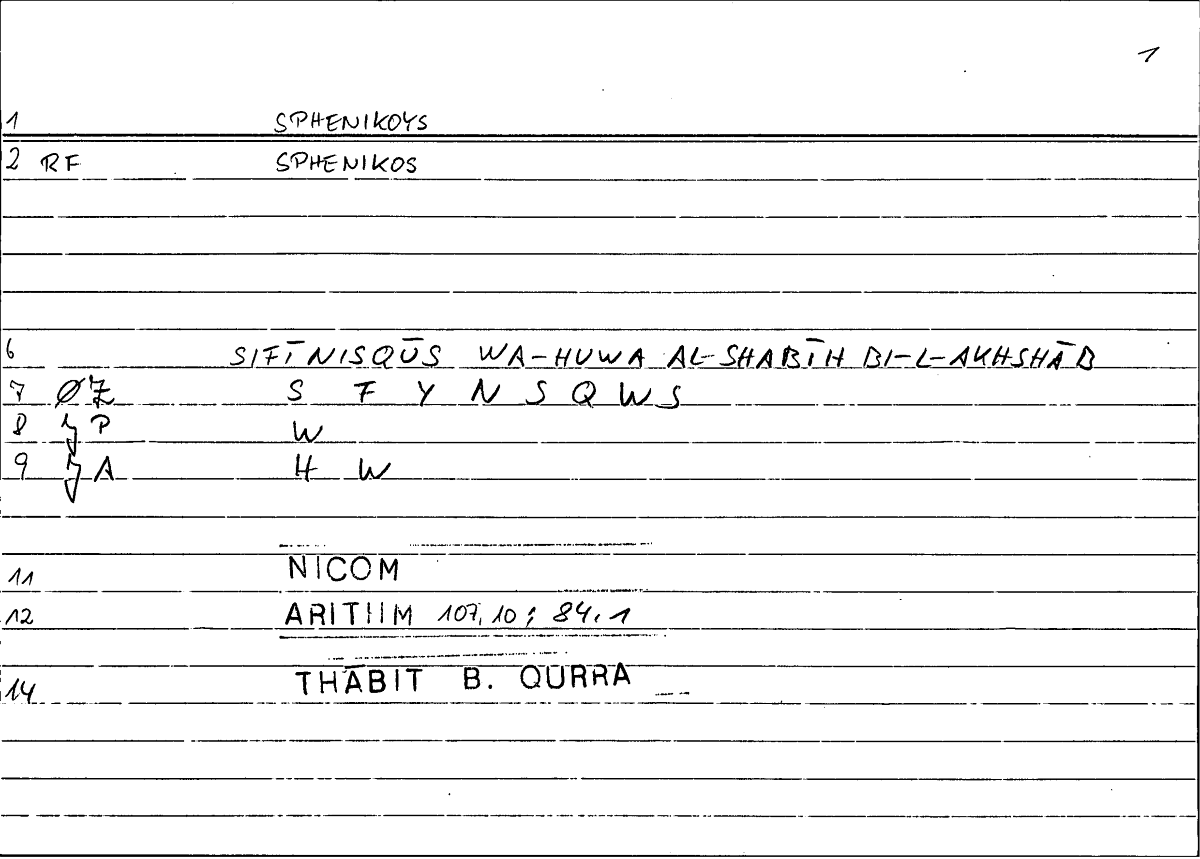 1
1 SPHENIKOYS
2 RF SPHENIKOS
6 SIFĪNISQŪS WA-HUWA AL-SHABĪH BI-L-AKHSHĀB
7 ØZ S F Y N S Q W S
8 P W
9 A H W
11 NICOM
12 ARITIIM 107,10; 84,1
14 THĀBIT B. QURRA